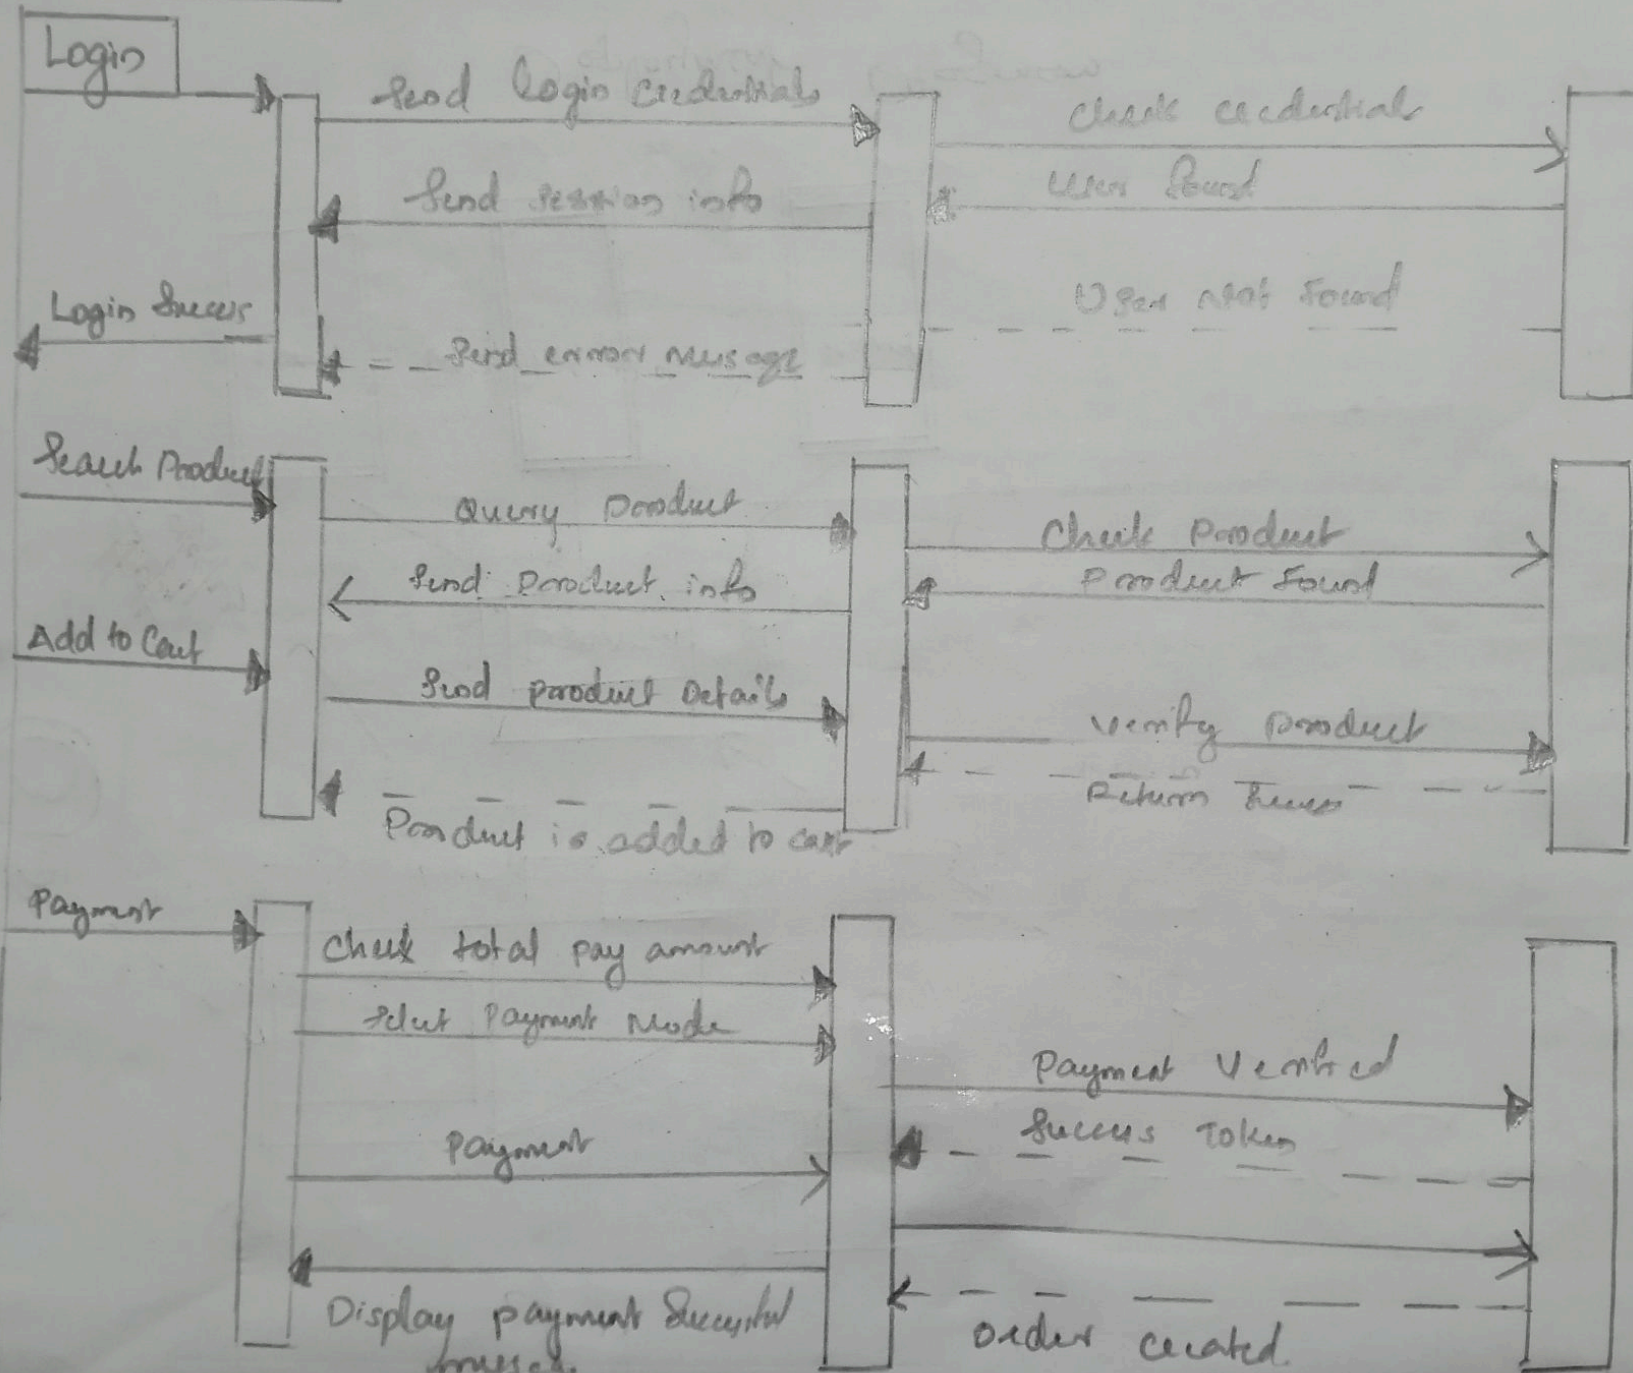 Login
Send Login Credentials
Check credentials
Send session info
User found
Login Success
User Not Found
Send error message
Search Product
Query product
Check Product
Send Product info
Product Found
Add to Cart
Send product Details
Verify product
Return
Product is added to cart
Payment
Check total pay amount
Select Payment Mode
Payment Verified
Success Token
Payment
Display payment Successful
Order created.